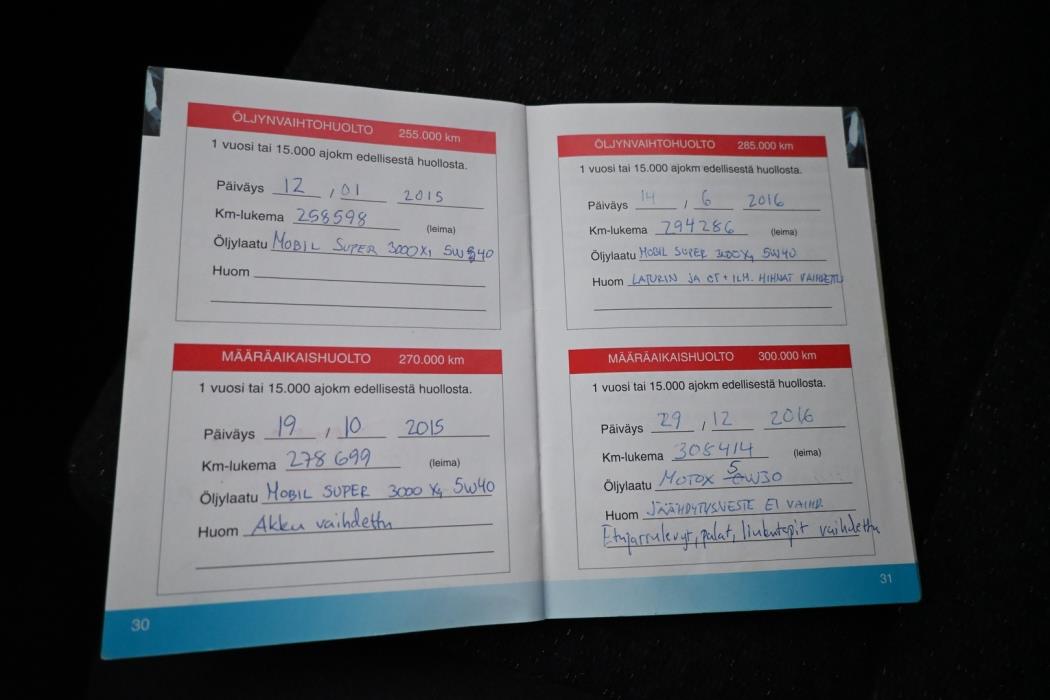 ÖLJYNVAIHTOHUOLTO 255.000 km
1 vuosi tai 15.000 ajokm edellisestä huollosta.
Päiväys 12 , 01 2015
Km-lukema 258598 (leima)
Öljylaatu MOBIL SUPER 3000 X1 5W40
Huom
MÄÄRÄAIKAISHUOLTO 270.000 km
1 vuosi tai 15.000 ajokm edellisestä huollosta.
Päiväys 19 , 10 2015
Km-lukema 278 699 (leima)
Öljylaatu MOBIL SUPER 3000 X1 5W40
Huom Akku vaihdettu
30
ÖLJYNVAIHTOHUOLTO 285.000 km
1 vuosi tai 15.000 ajokm edellisestä huollosta.
Päiväys 14 , 6 2016
Km-lukema 294286 (leima)
Öljylaatu MOBIL SUPER 3000X1 5W40
Huom LATURIN JA OT + ILM. HIHNAT VAIHDETTU
MÄÄRÄAIKAISHUOLTO 300.000 km
1 vuosi tai 15.000 ajokm edellisestä huollosta.
Päiväys 29 , 12 2016
Km-lukema 308414 (leima)
Öljylaatu MOTOX 5W30
Huom JÄÄHDYTYSNESTE EI VAIHD.
Etujarrulevyt, palat, liukutapit vaihdettu
31